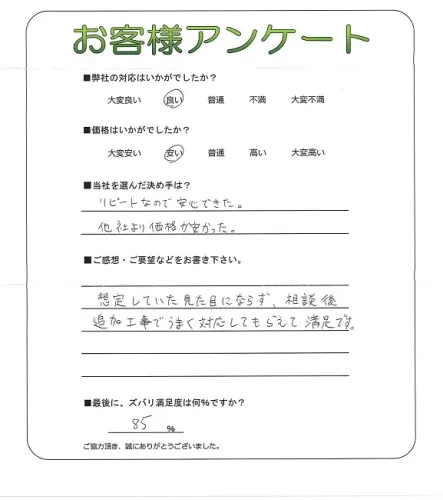 お客様アンケート
■弊社の対応はいかがでしたか?
大変良い 良い 普通 不満 大変不満
■価格はいかがでしたか?
大変安い 安い 普通 高い 大変高い
■当社を選んだ決め手は?
リピートなので安心できた。
他社より価格が安かった。
■ご感想・ご要望などをお書き下さい。
想定していた見た目にならず、相談後
追加工事でうまく対応してもらえて満足です。
■最後に、ズバリ満足度は何%ですか?
85 %
ご協力頂き、誠にありがとうございました。